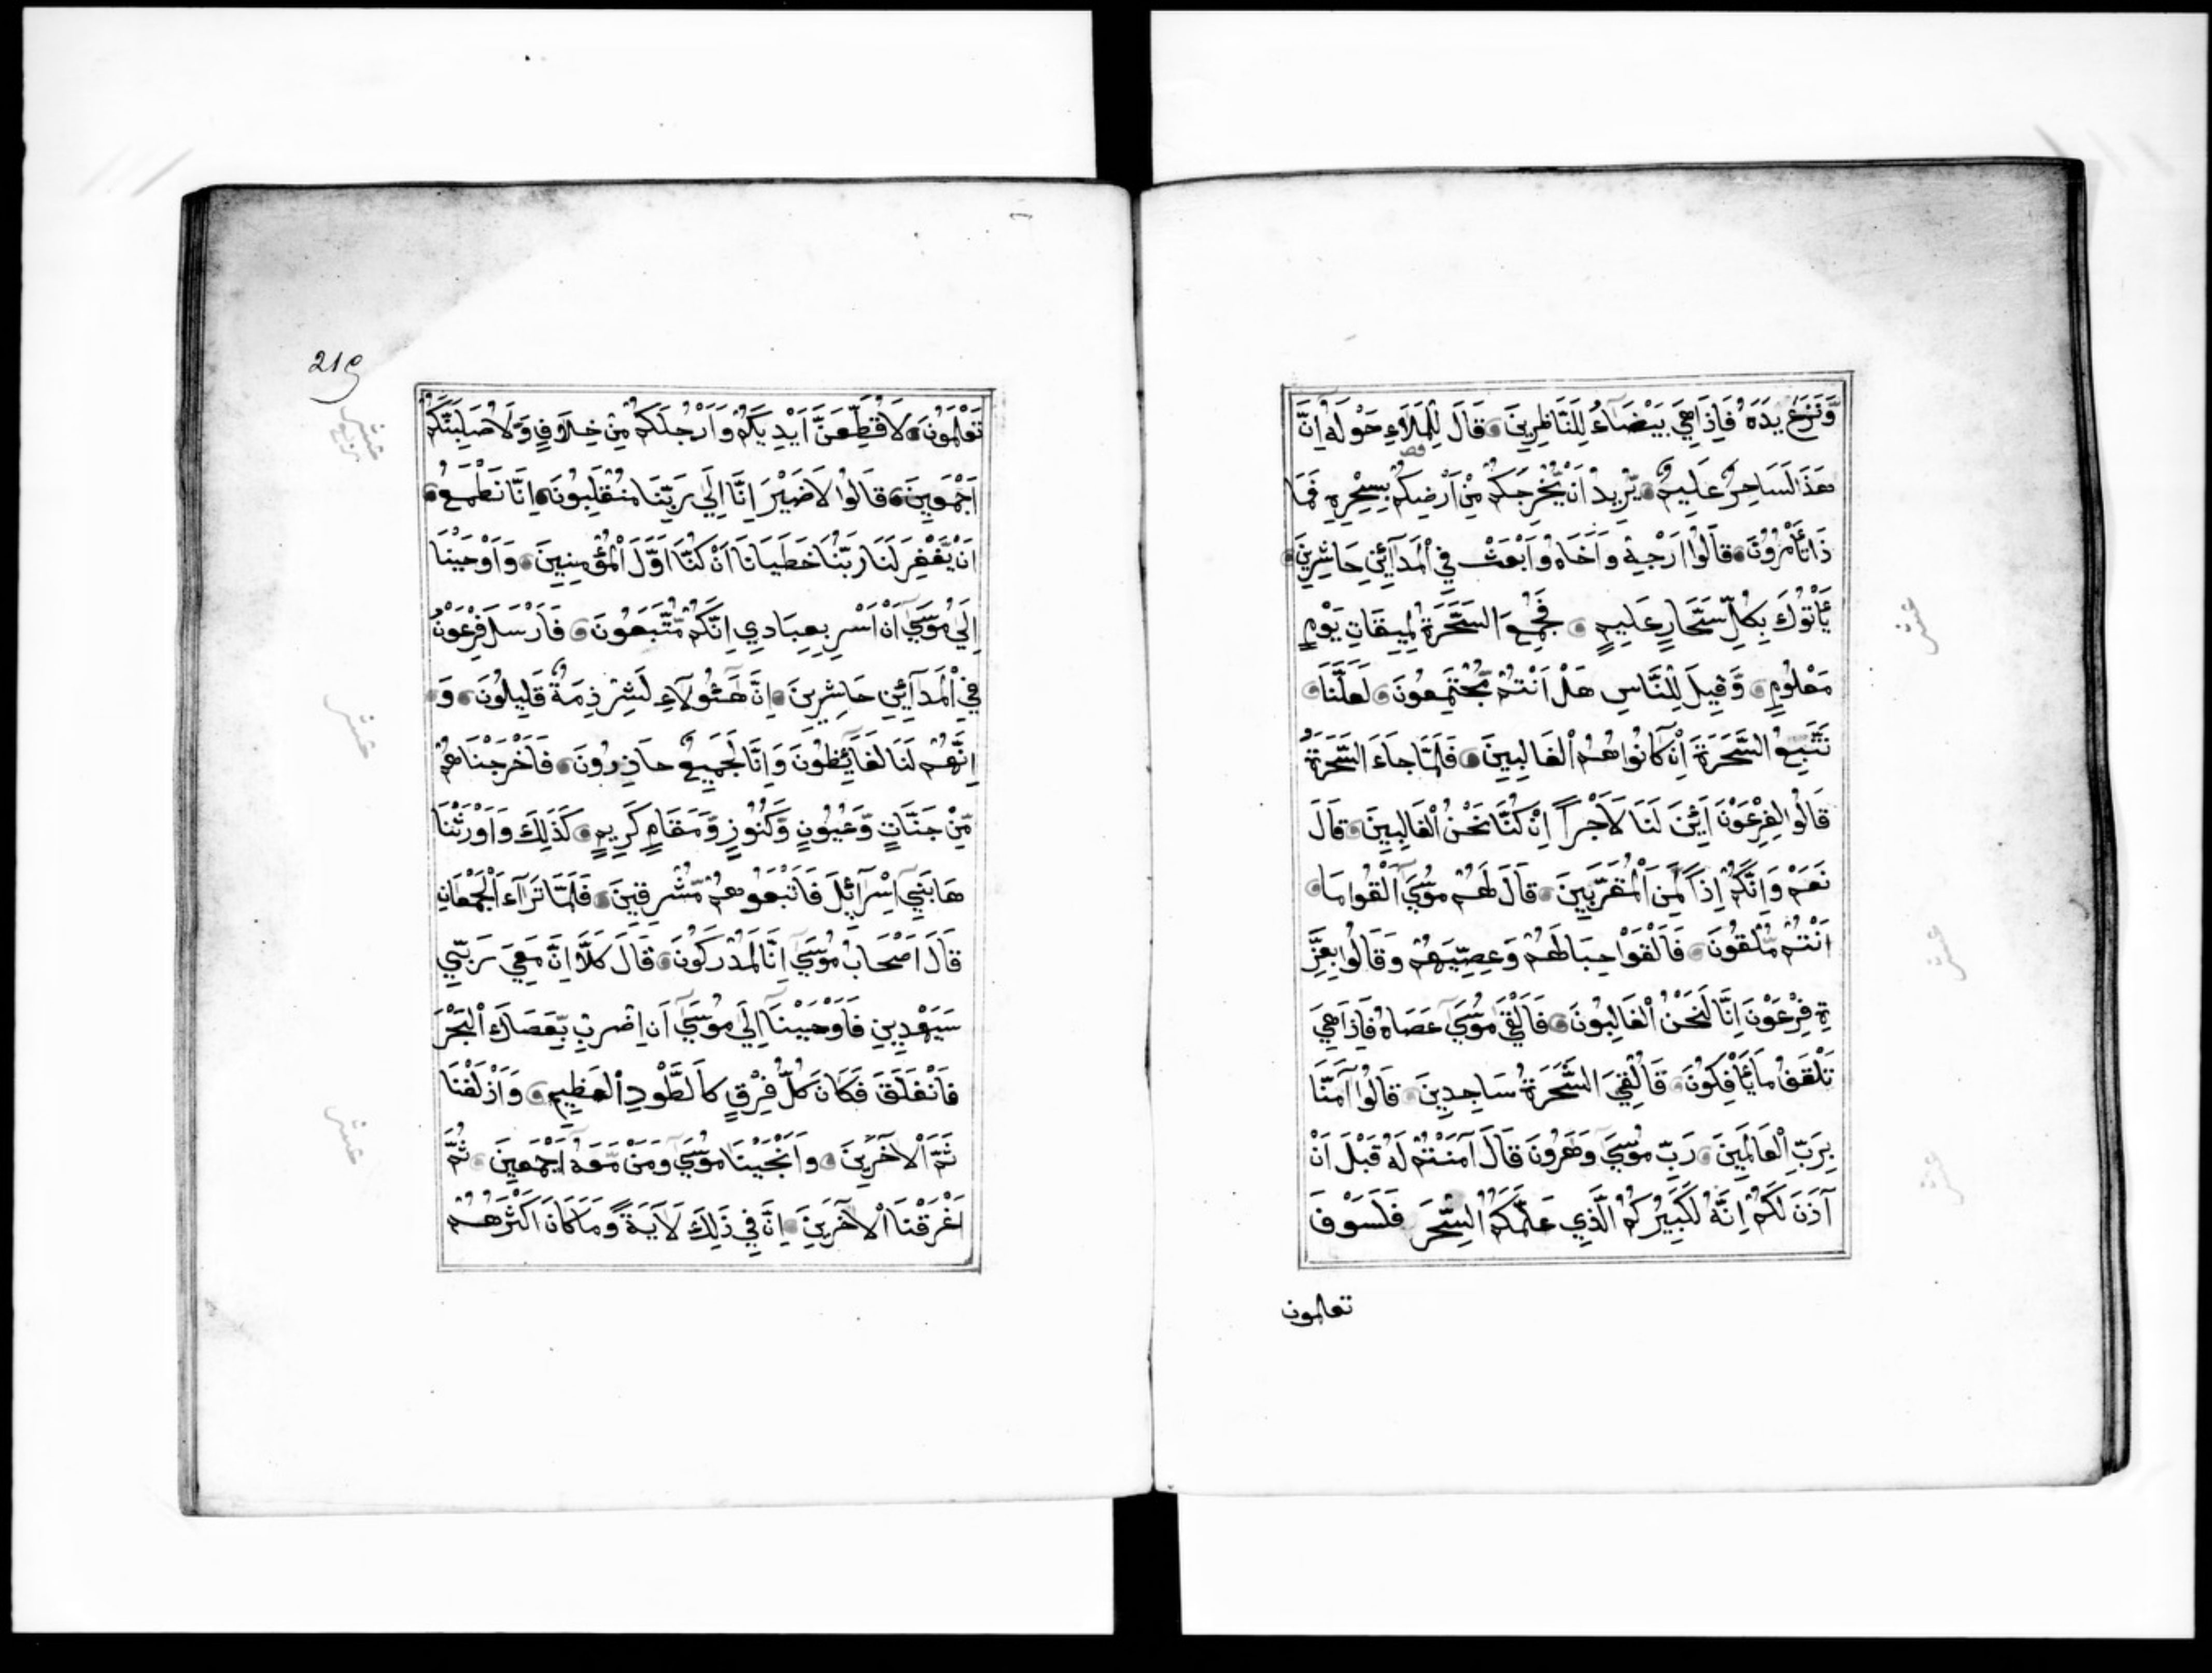 وَّنَزَعَ يَدَهُ فَاِذَا هِيَ بَيْضَاءُ لِلنَّاظِرِينَ قَالَ لِلْمَلَاءِ حَوْلَهُ اِنَّ
هَذَا لَسَاحِرٌ عَلِيمٌ يُّرِيدُ اَنْ يُّخْرِجَكُمْ مِّنْ اَرْضِكُمْ بِسِحْرِهِ فَمَا
ذَا تَأْمُرُونَ قَالُوا اَرْجِهْ وَاَخَاهُ وَابْعَثْ فِي الْمَدَآئِنِ حَاشِرِينَ
يَأْتُوكَ بِكُلِّ سَحَّارٍ عَلِيمٍ فَجُمِعَ السَّحَرَةُ لِمِيقَاتِ يَوْمٍ
مَعْلُومٍ وَّقِيلَ لِلنَّاسِ هَلْ اَنْتُمْ مُّجْتَمِعُونَ لَعَلَّنَا
نَتَّبِعُ السَّحَرَةَ اِنْ كَانُوا هُمُ الْغَالِبِينَ فَلَمَّا جَاءَ السَّحَرَةُ
قَالُوا لِفِرْعَوْنَ اَئِنَّ لَنَا لَاَجْراً اِنْ كُنَّا نَحْنُ الْغَالِبِينَ قَالَ
نَعَمْ وَاِنَّكُمْ اِذاً لَّمِنَ الْمُقَرَّبِينَ قَالَ لَهُمْ مُوسَى اَلْقُوا مَا
اَنْتُمْ مُّلْقُونَ فَاَلْقَوْا حِبَالَهُمْ وَعِصِيَّهُمْ وَقَالُوا بِعِزَّ
ةِ فِرْعَوْنَ اِنَّا لَنَحْنُ الْغَالِبُونَ فَاَلْقَى مُوسَى عَصَاهُ فَاِذَا هِيَ
تَلْقَفُ مَا يَأْفِكُونَ فَاُلْقِيَ السَّحَرَةُ سَاجِدِينَ قَالُوا آمَنَّا
بِرَبِّ الْعَالَمِينَ رَبِّ مُوسَى وَهَرُونَ قَالَ آمَنْتُمْ لَهُ قَبْلَ اَنْ
آذَنَ لَكُمْ اِنَّهُ لَكَبِيرُكُمُ الَّذِي عَلَّمَكُمُ السِّحْرَ فَلَسَوْفَ
تعلمون
219
تَعْلَمُونَ لَاُقَطِّعَنَّ اَيْدِيَكُمْ وَاَرْجُلَكُمْ مِّنْ خِلَافٍ وَّلَاُصَلِّبَنَّكُمْ
اَجْمَعِينَ قَالُوا لَا ضَيْرَ اِنَّا اِلَى رَبِّنَا مُنْقَلِبُونَ اِنَّا نَطْمَعُ
اَنْ يَّغْفِرَ لَنَا رَبُّنَا خَطَيَانَا اَنْ كُنَّا اَوَّلَ الْمُؤْمِنِينَ وَاَوْحَيْنَا
اِلَى مُوسَى اَنْ اَسْرِ بِعِبَادِي اِنَّكُمْ مُّتَّبَعُونَ فَاَرْسَلَ فِرْعَوْنُ
فِي الْمَدَآئِنِ حَاشِرِينَ اِنَّ هَؤُلَاءِ لَشِرْذِمَةٌ قَلِيلُونَ وَ
اِنَّهُمْ لَنَا لَغَائِظُونَ وَاِنَّا لَجَمِيعٌ حَاذِرُونَ فَاَخْرَجْنَاهُمْ
مِّنْ جَنَّاتٍ وَّعُيُونٍ وَّكُنُوزٍ وَّمَقَامٍ كَرِيمٍ كَذَلِكَ وَاَوْرَثْنَا
هَا بَنِي اِسْرَآئِلَ فَاَتْبَعُوهُمْ مُّشْرِقِينَ فَلَمَّا تَرَآءَ الْجَمْعَانِ
قَالَ اَصْحَابُ مُوسَى اِنَّا لَمُدْرَكُونَ قَالَ كَلَّا اِنَّ مَعِيَ رَبِّي
سَيَهْدِينِ فَاَوْحَيْنَا اِلَى مُوسَى اَنِ اضْرِبْ بِّعَصَاكَ الْبَحْرَ
فَانْفَلَقَ فَكَانَ كُلُّ فِرْقٍ كَالطَّوْدِ الْعَظِيمِ وَاَزْلَفْنَا
ثَمَّ الْآخَرِينَ وَاَنْجَيْنَا مُوسَى وَمَنْ مَّعَهُ اَجْمَعِينَ ثُمَّ
اَغْرَقْنَا الْآخَرِينَ اِنَّ فِي ذَلِكَ لَآيَةً وَّمَا كَانَ اَكْثَرُهُمْ